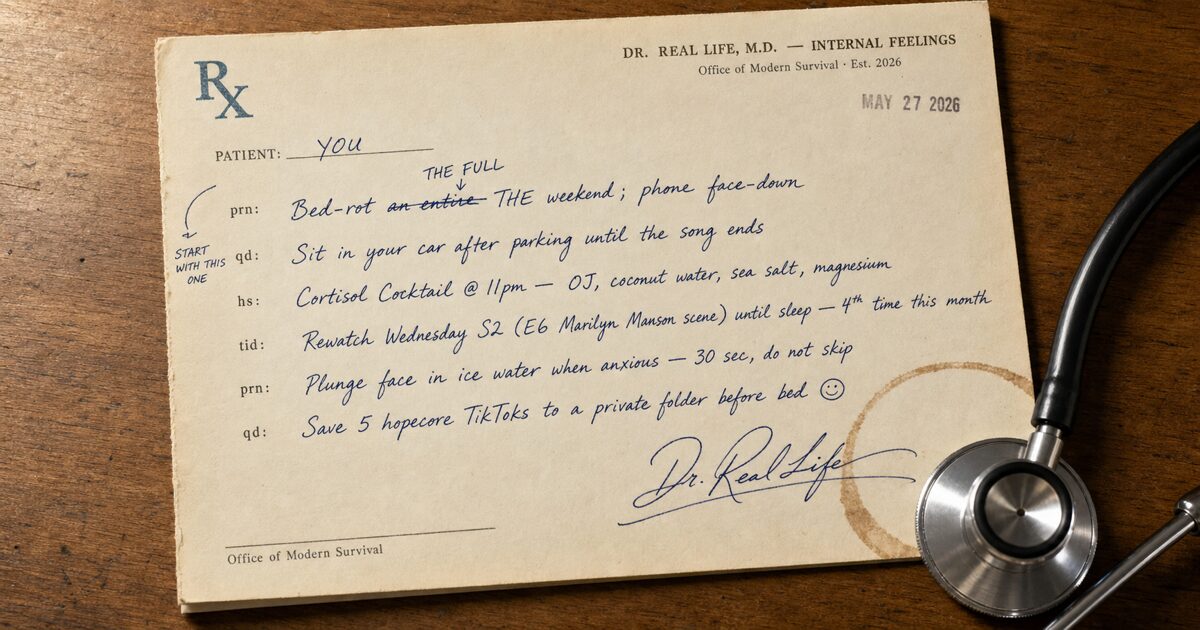 Rx
DR. REAL LIFE, M.D. — INTERNAL FEELINGS
Office of Modern Survival · Est. 2026
MAY 27 2026
PATIENT: YOU
THE FULL
prn: Bed-rot an entire THE weekend; phone face-down
START
WITH THIS
ONE
qd: Sit in your car after parking until the song ends
hs: Cortisol Cocktail @ 11pm — OJ, coconut water, sea salt, magnesium
tid: Rewatch Wednesday S2 (E6 Marilyn Manson scene) until sleep — 4th time this month
prn: Plunge face in ice water when anxious — 30 sec, do not skip
qd: Save 5 hopecore TikToks to a private folder before bed ☺
Dr. Real Life
Office of Modern Survival